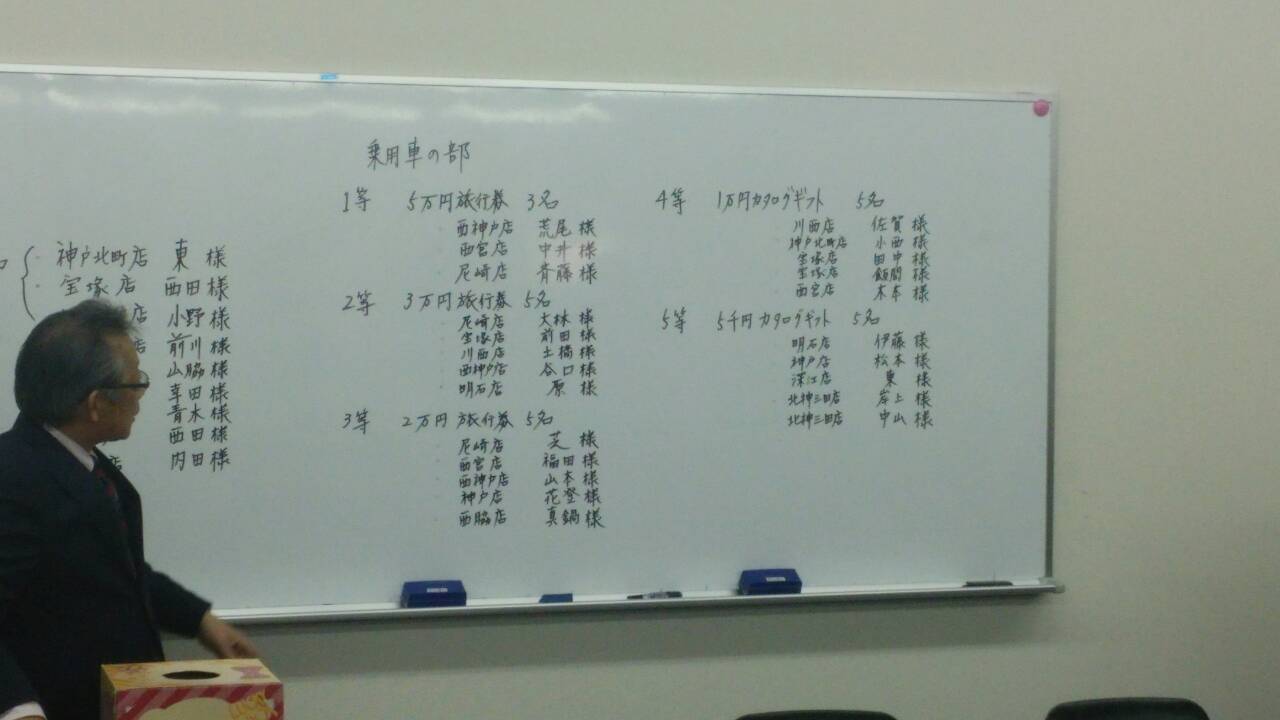 神戸北町店 東 様
宝塚店 西田様
店 小野様
前川様
山脇様
幸田様
青木様
西田様
店 内田様
乗用車の部
1等 5万円旅行券 3名
西神戸店 荒尾様
西宮店 中井様
尼崎店 斉藤様
2等 3万円旅行券 5名
尼崎店 大林様
宝塚店 前田様
川西店 土橋様
西神戸店 谷口様
明石店 原 様
3等 2万円旅行券 5名
尼崎店 芝 様
西宮店 福田様
西神戸店 山本様
神戸店 花登様
西脇店 真鍋様
4等 1万円カタログギフト 5名
川西店 佐賀様
神戸北町店 小西様
宝塚店 田中様
宝塚店 飯間様
西宮店 木本様
5等 5千円カタログギフト 5名
明石店 伊藤様
神戸店 松本様
深江店 東 様
北神三田店 岸上様
北神三田店 中山様